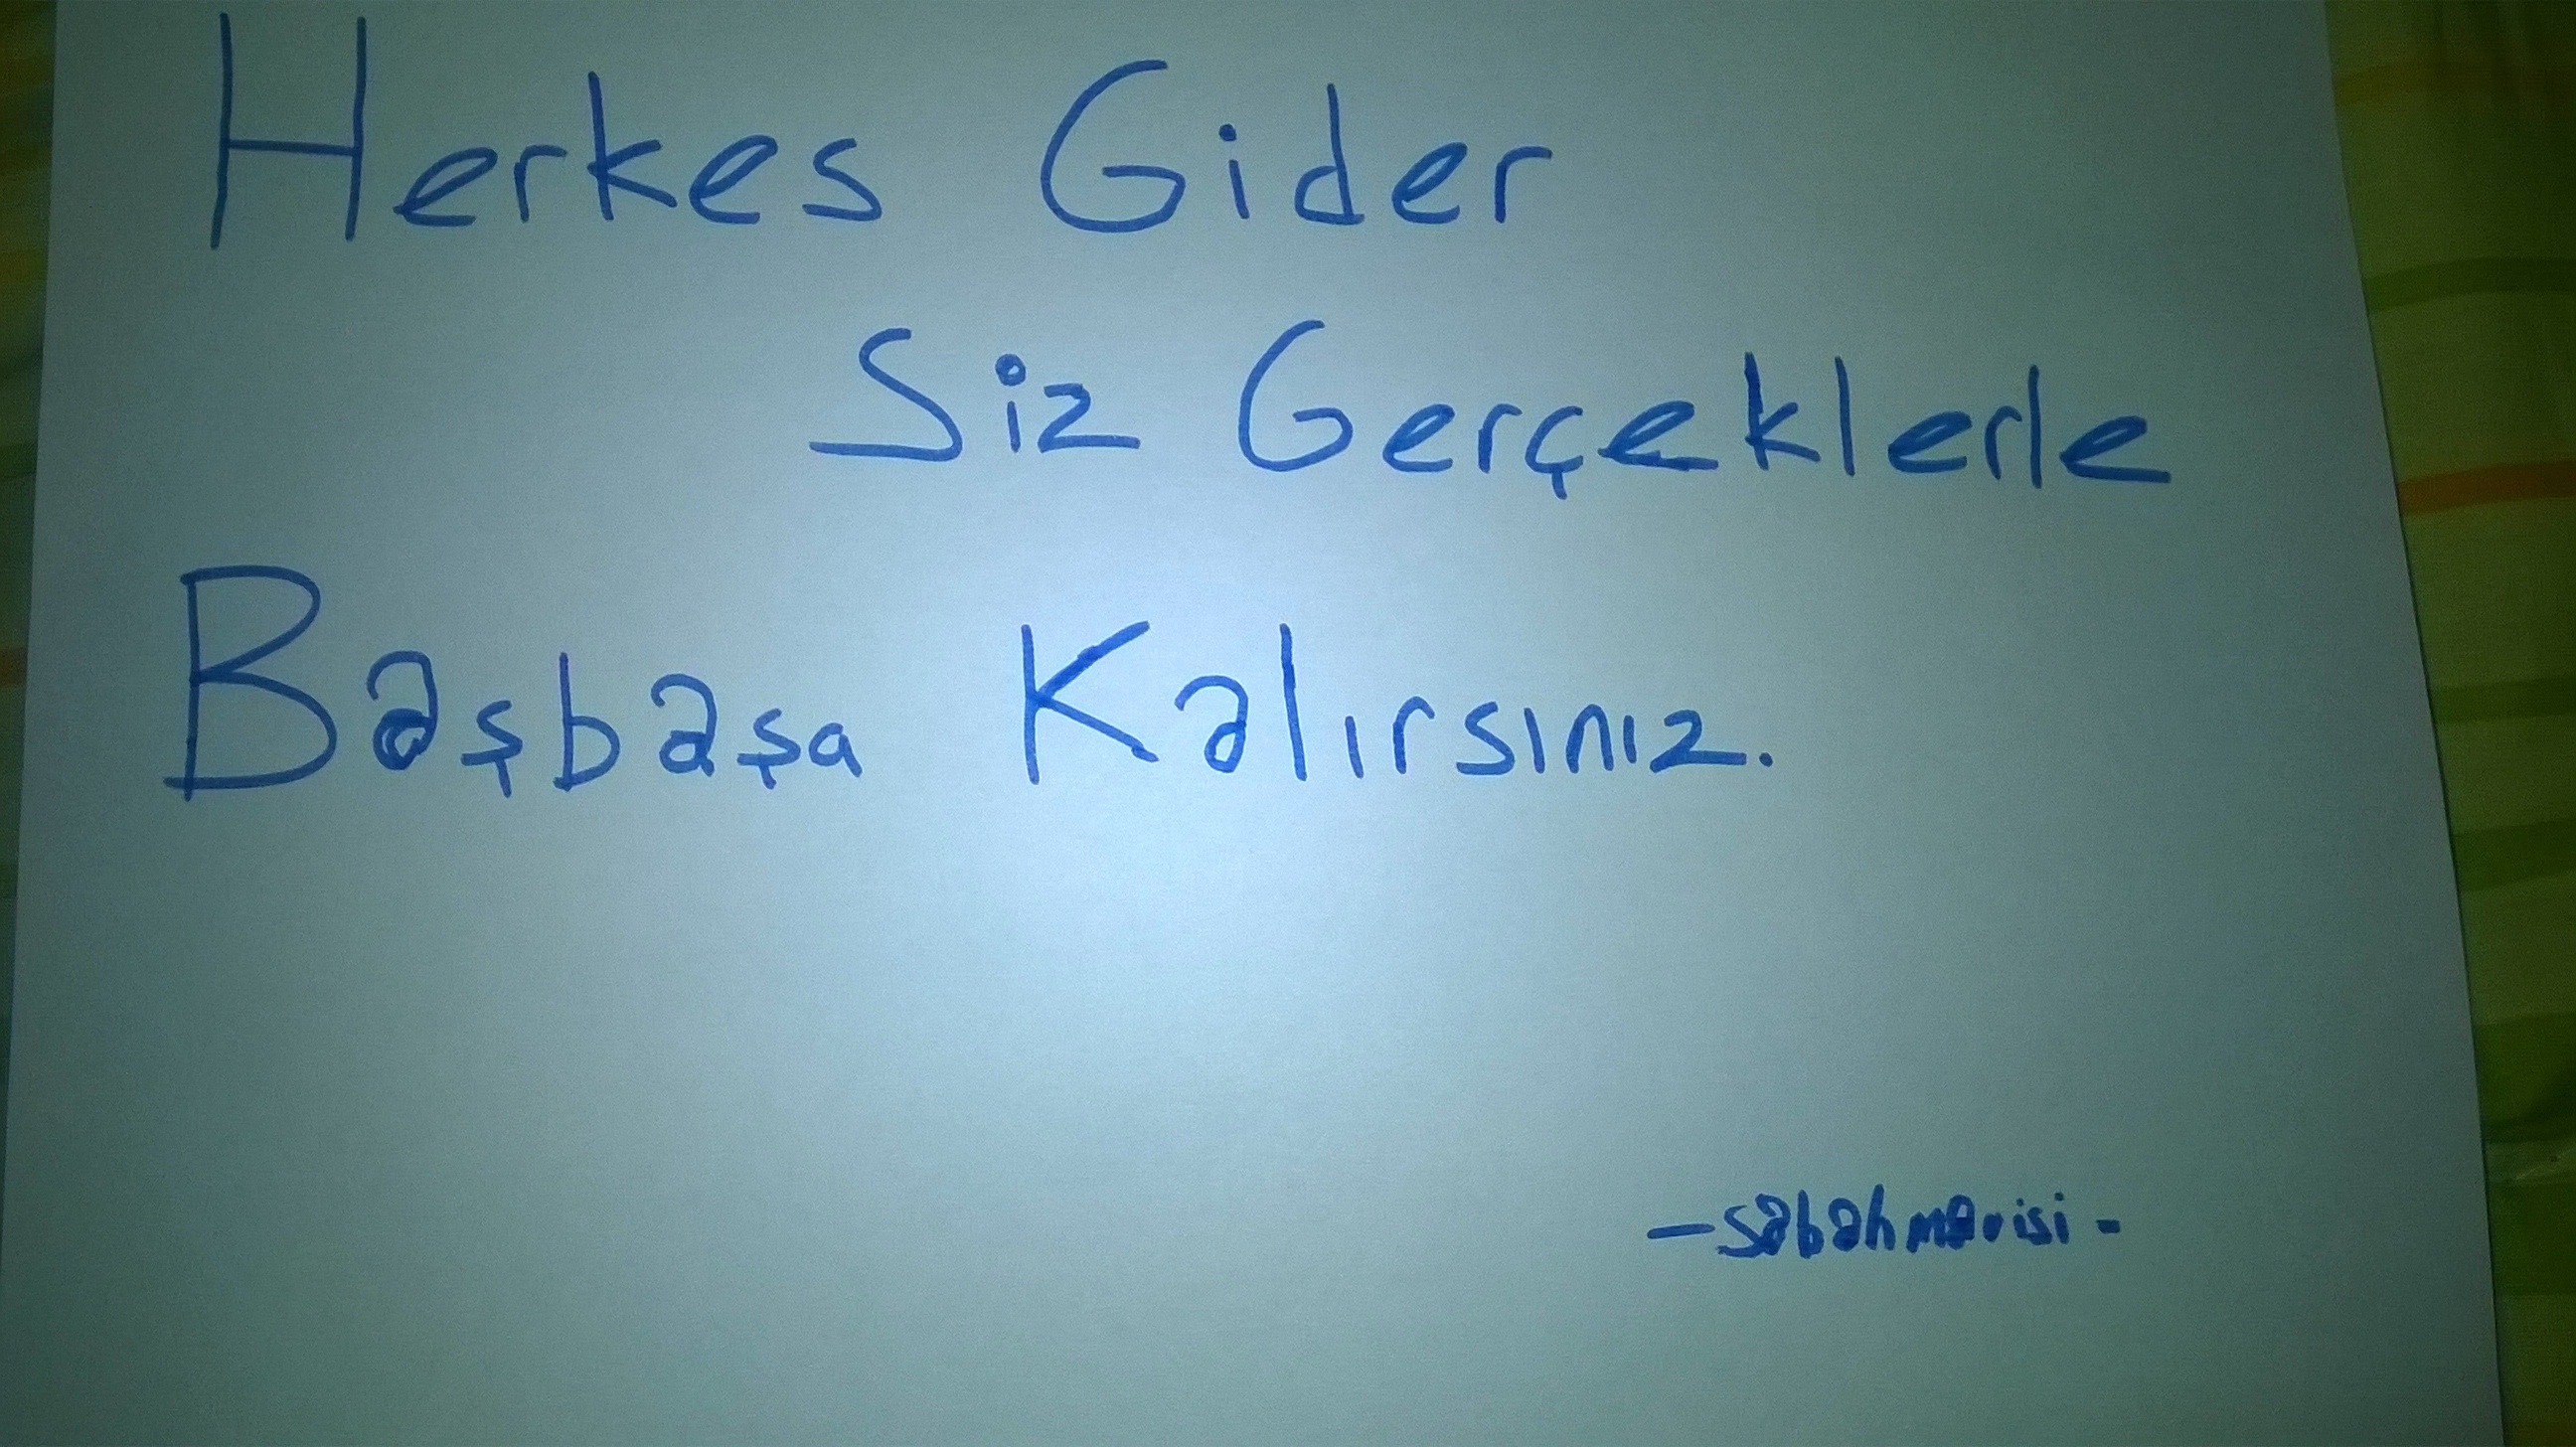 Herkes Gider
Siz Gerçeklerle
Başbaşa Kalırsınız.
-sabahmavisi-